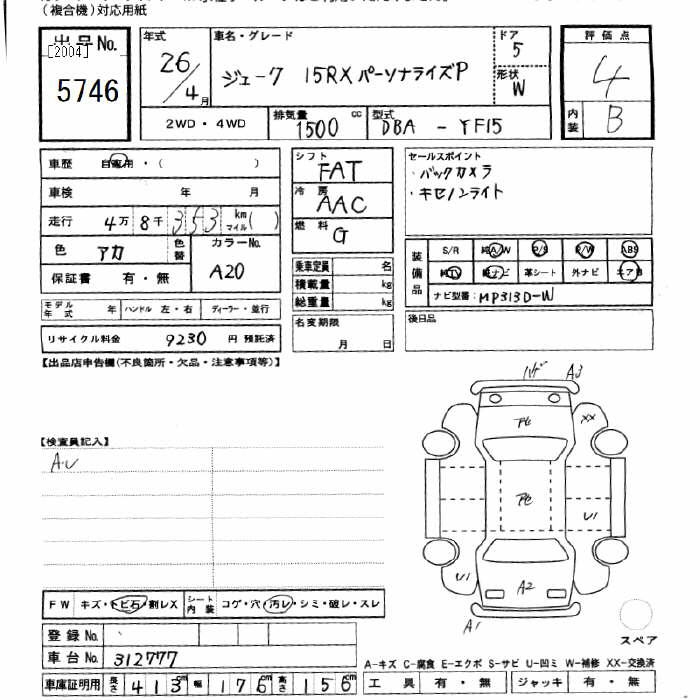 (複合機)対応用紙
出品No.
[2004]
5746
年式
26/4月
車名・グレード
ジューク 15RX パーソナライズP
ドア
5
形状
W
評価点
4
内装
B
2WD・4WD
排気量
1500 cc
型式
DBA - YF15
車歴 自家用・( )
車検 年 月
走行 4万8千353 km マイル( )
色 アカ 色替
カラーNo.
A20
保証書 有・無
モデル年式 年 ハンドル 左・右 ディーラー・並行
リサイクル料金 9230 円 預託済
シフト
FAT
冷房
AAC
燃料
G
乗車定員 名
積載量 kg
総重量 kg
名変期限
月 日
セールスポイント
・バックカメラ
・キセノンライト
装備品
S/R 純A/W P/S P/W ABS
純TV 純ナビ 革シート 外ナビ エアB
ナビ型番: MP313D-W
後日品
【出品店申告欄(不良箇所・欠品・注意事項等)】
【検査員記入】
A.U
ハゲ A3
XX
U1
U1
A2
A1
スペア
FW キズ・トビ石・割レX シート内装 コゲ・穴・汚レ・シミ・破レ・スレ
登録No.
車台No. 312777
車庫証明用 長さ 413cm 幅 176cm 高さ 156cm
A-キズ C-腐食 E-エクボ S-サビ U-凹ミ W-補修 XX-交換済
工具 有・無 ジャッキ 有・無